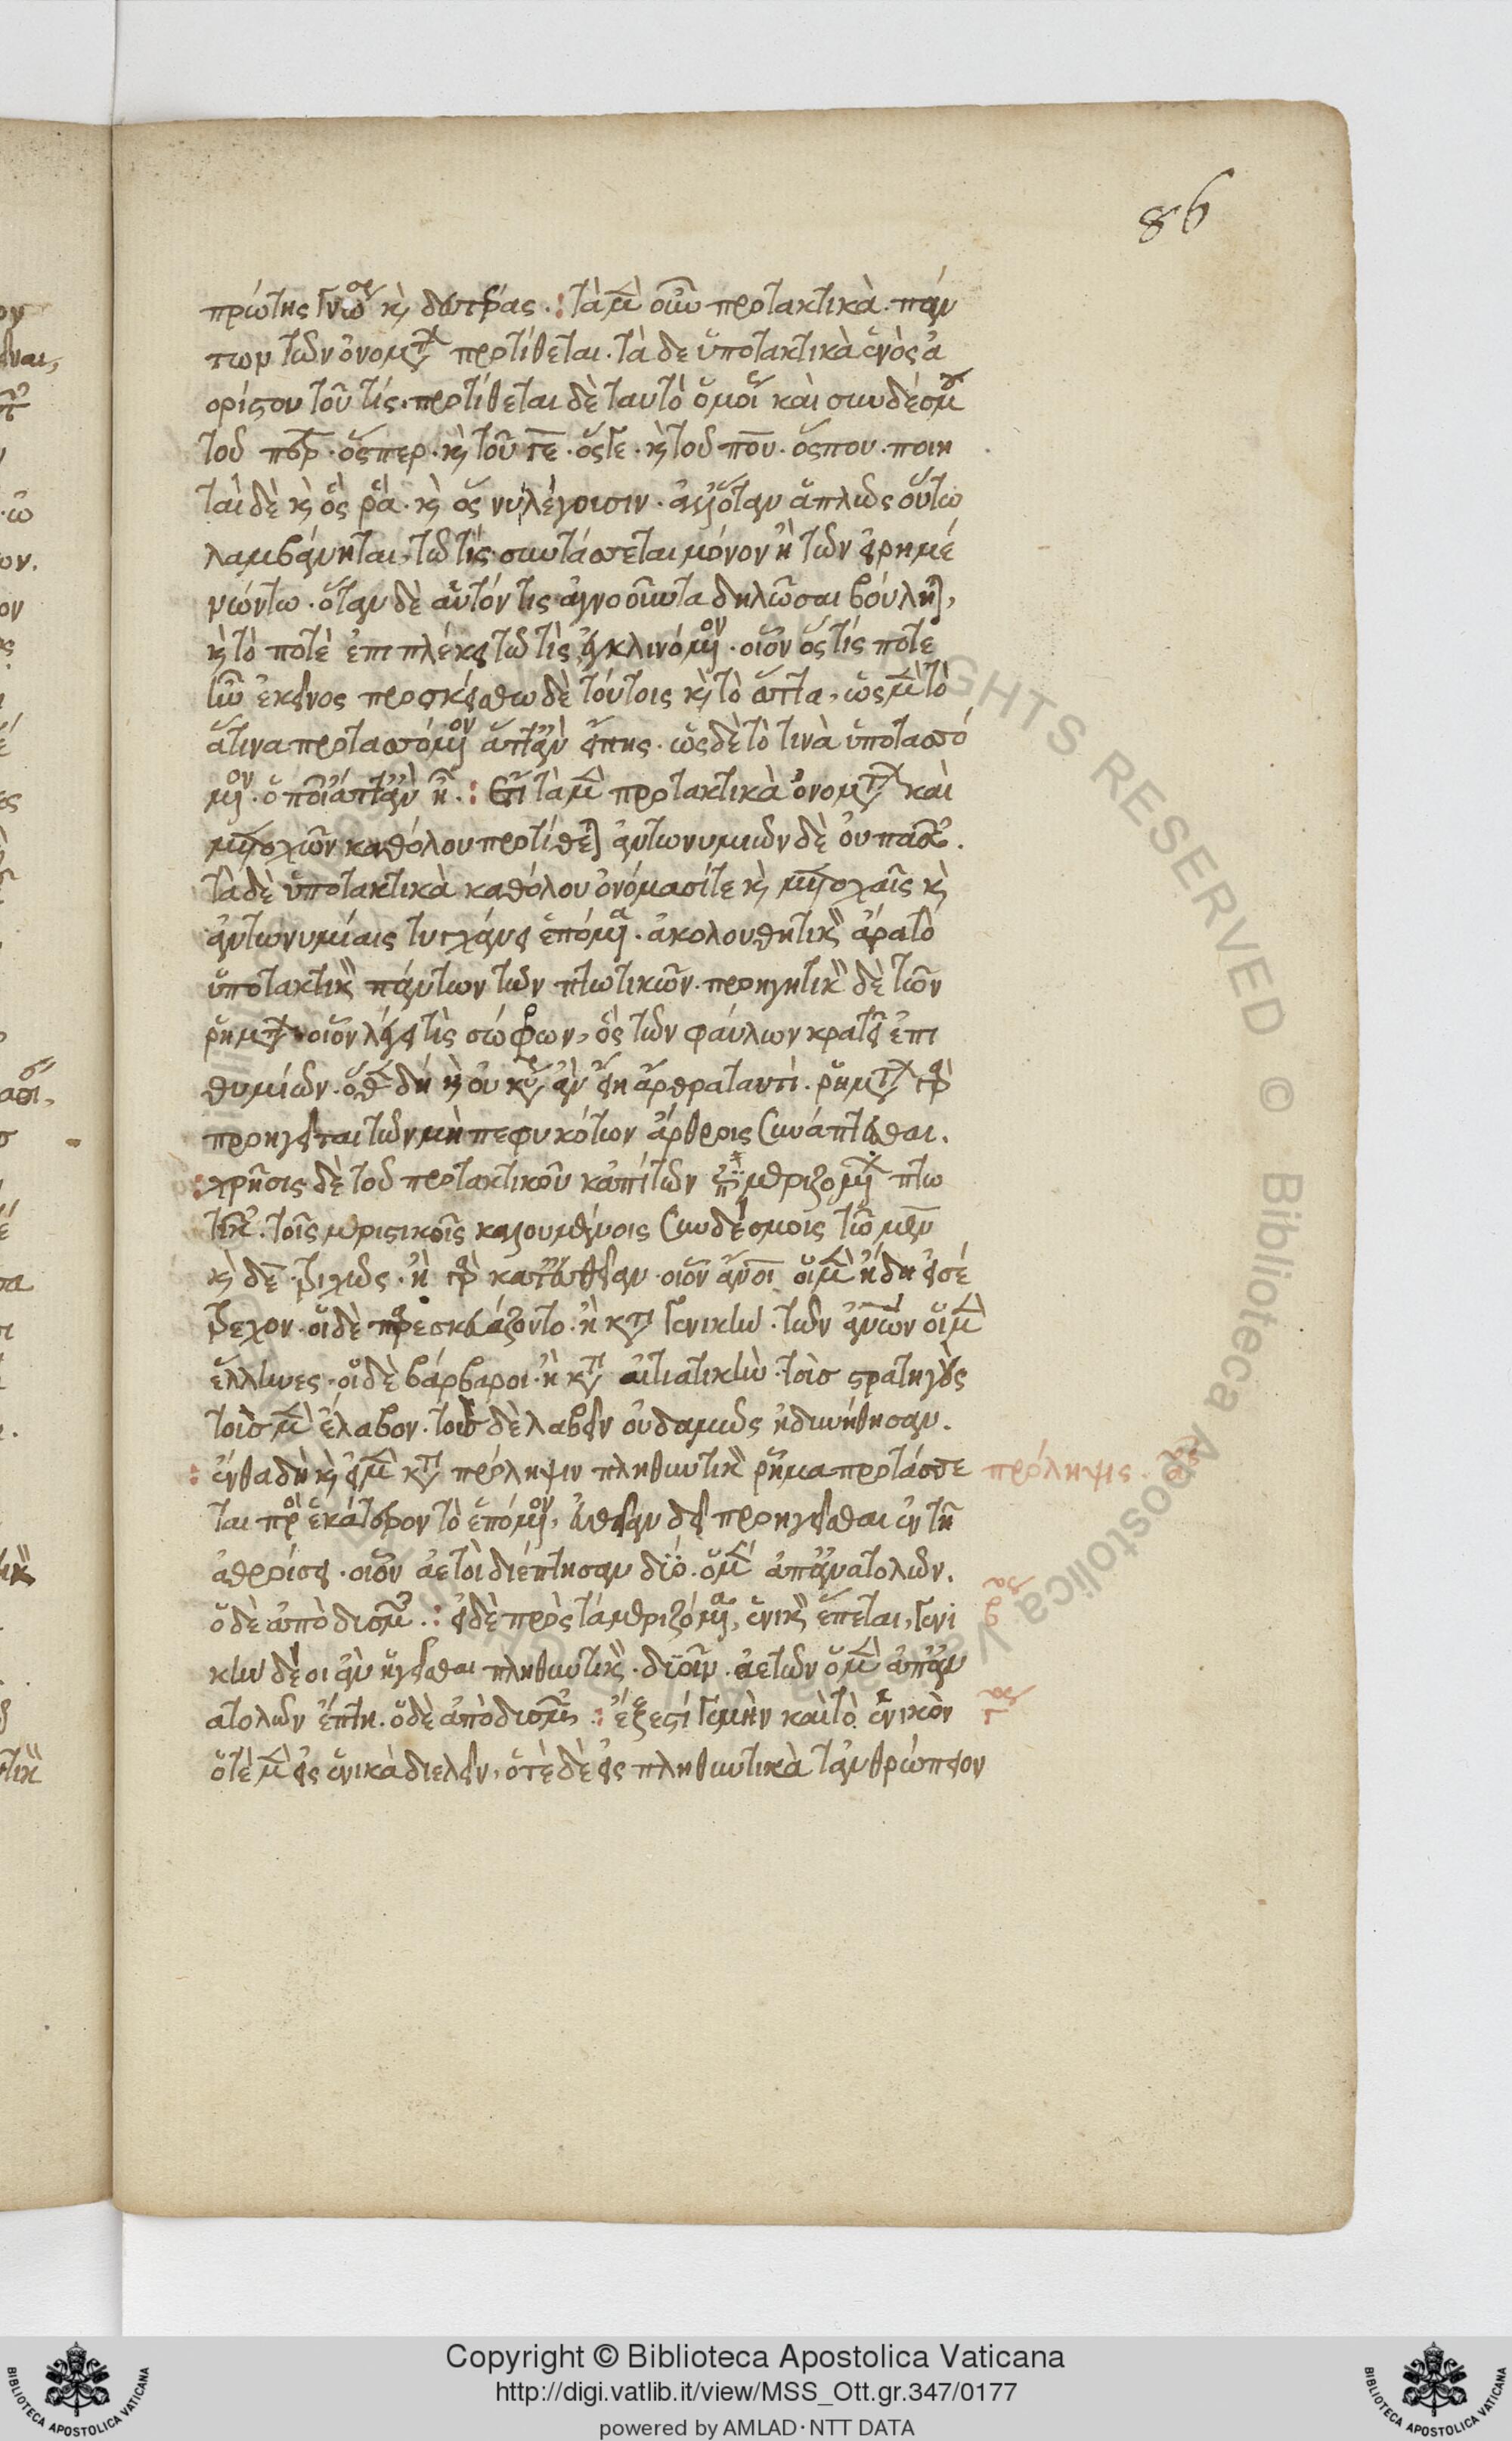 86
πρώτης καὶ δευτέρας : τὰ μὲν οὖν προτακτικὰ πάν
των τῶν ὀνομάτων προτίθεται · τὰ δὲ ὑποτακτικὰ ἑνὸς ἀ
ορίστου τοῦ τίς · προτίθεται δὲ ταυτὸ ὁμοῦ καὶ συνδέσμου
τοῦ περ · ὅσπερ · καὶ τοῦ τε · ὅστε · καὶ τοῦ που · ὅσπου · ποιη
ταὶ δὲ καὶ ὅς ῥα · καὶ ὅς νυ λέγουσιν · ὅταν ἁπλῶς οὕτω
λαμβάνηται, τῶ τίς συντάσσεται μόνον ἢ τῶν εἰρημέ
νων τω · ὅταν δὲ αὐτόν τις ἀγνοοῦντα δηλῶσαι βούληται,
καὶ τὸ ποτὲ ἐπιπλέκει τῶ τὶς ἐγκλινόμενον · οἷον ὅστίς ποτε
ἐκεῖνος προσκείσθω δὲ τούτοις καὶ τὸ ἅττα, ὡς μὲν τὸ
ἅτινα προτασσόμενον ἅττ' ἂν εἴπης · ὡς δὲ τὸ τινὰ ὑποτασσό
μενον · ὁποῖ' ἄττ' ἂν ἦ : ἔτι τὰ μὲν προτακτικὰ ὀνομάτων καὶ
μετοχῶν καθόλου προτίθεται ἀντωνυμιῶν δὲ οὐ πασῶν.
τὰ δὲ ὑποτακτικὰ καθόλου ὀνόμασί τε καὶ μετοχαῖς καὶ
ἀντωνυμίαις τυγχάνει ἑπόμενα · ἀκολουθητικὸν ἄρα τὸ
ὑποτακτικὸν πάντων τῶν πτωτικῶν · προηγητικὸν δὲ τῶν
ῥημάτων οἷον λέγει τὶς σώφρων, ὃς τῶν φαύλων κρατεῖ ἐπι
θυμιῶν · ὅθεν δὴ καὶ οὐ κυρίως ἂν εἴη ἄρθρα ταυτί · ῥημάτων γὰρ
προηγεῖται τῶν μὴ πεφυκότων ἄρθροις συνάπτεσθαι.
: χρῆσις δὲ τοῦ προτακτικοῦ κἀπὶ τῶν ἐπιμεριζομένων πτω
τικῶν · τοῖς μεριστικοῖς καλουμένοις συνδέσμοις τῶ μὲν
καὶ δέ · διχῶς · ἢ γὰρ κατ' εὐθεῖαν · οἷον ἄνθρωποι οἱ μὲν ἤδη εἰσέ
τρεχον · οἱ δὲ παρεσκευάζοντο · ἢ κατὰ γενικὴν · τῶν ἀνθρώπων οἱ μὲν
ἕλληνες · οἱ δὲ βάρβαροι · ἢ κατὰ αἰτιατικὴν · τοὺς στρατηγοὺς
τοὺς μὲν ἔλαβον · τοὺς δὲ λαβεῖν οὐδαμῶς ἠδυνήθησαν.
: ἔνθα δὴ καὶ εἰ μὲν κατὰ πρόληψιν πληθυντικὸν ῥῆμα προτάσσε
ται πρὸς ἑκάτερον τὸ ἑπόμενον, εὐθεῖαν δεῖ προηγεῖσθαι ἐν τῆ
ἀθροίσει · οἷον ἀετοὶ διέπτησαν δύο · ὁ μὲν ἀπ' ἀνατολῶν.
ὁ δὲ ἀπὸ δυσμῶν : εἰ δὲ πρὸς τὰ μεριζόμενα, ἑνικὸν ἕπεται, γενι
κὴν δέοι ἂν ἡγεῖσθαι πληθυντικήν · δυοῖν ἀετῶν ὁ μὲν ἀπ' ἀν
ατολῶν ἔπτη · ὁ δὲ ἀπὸ δυσμῶν : ἔξεστί γε μὴν καὶ τὸ ἑνικὸν
ὁτὲ μὲν εἰς ἑνικὰ διελεῖν, ὁτὲ δὲ εἰς πληθυντικὰ τἀνθρώπειον
πρόληψις
Copyright © Biblioteca Apostolica Vaticana
http://digi.vatlib.it/view/MSS_Ott.gr.347/0177
powered by AMLAD · NTT DATA